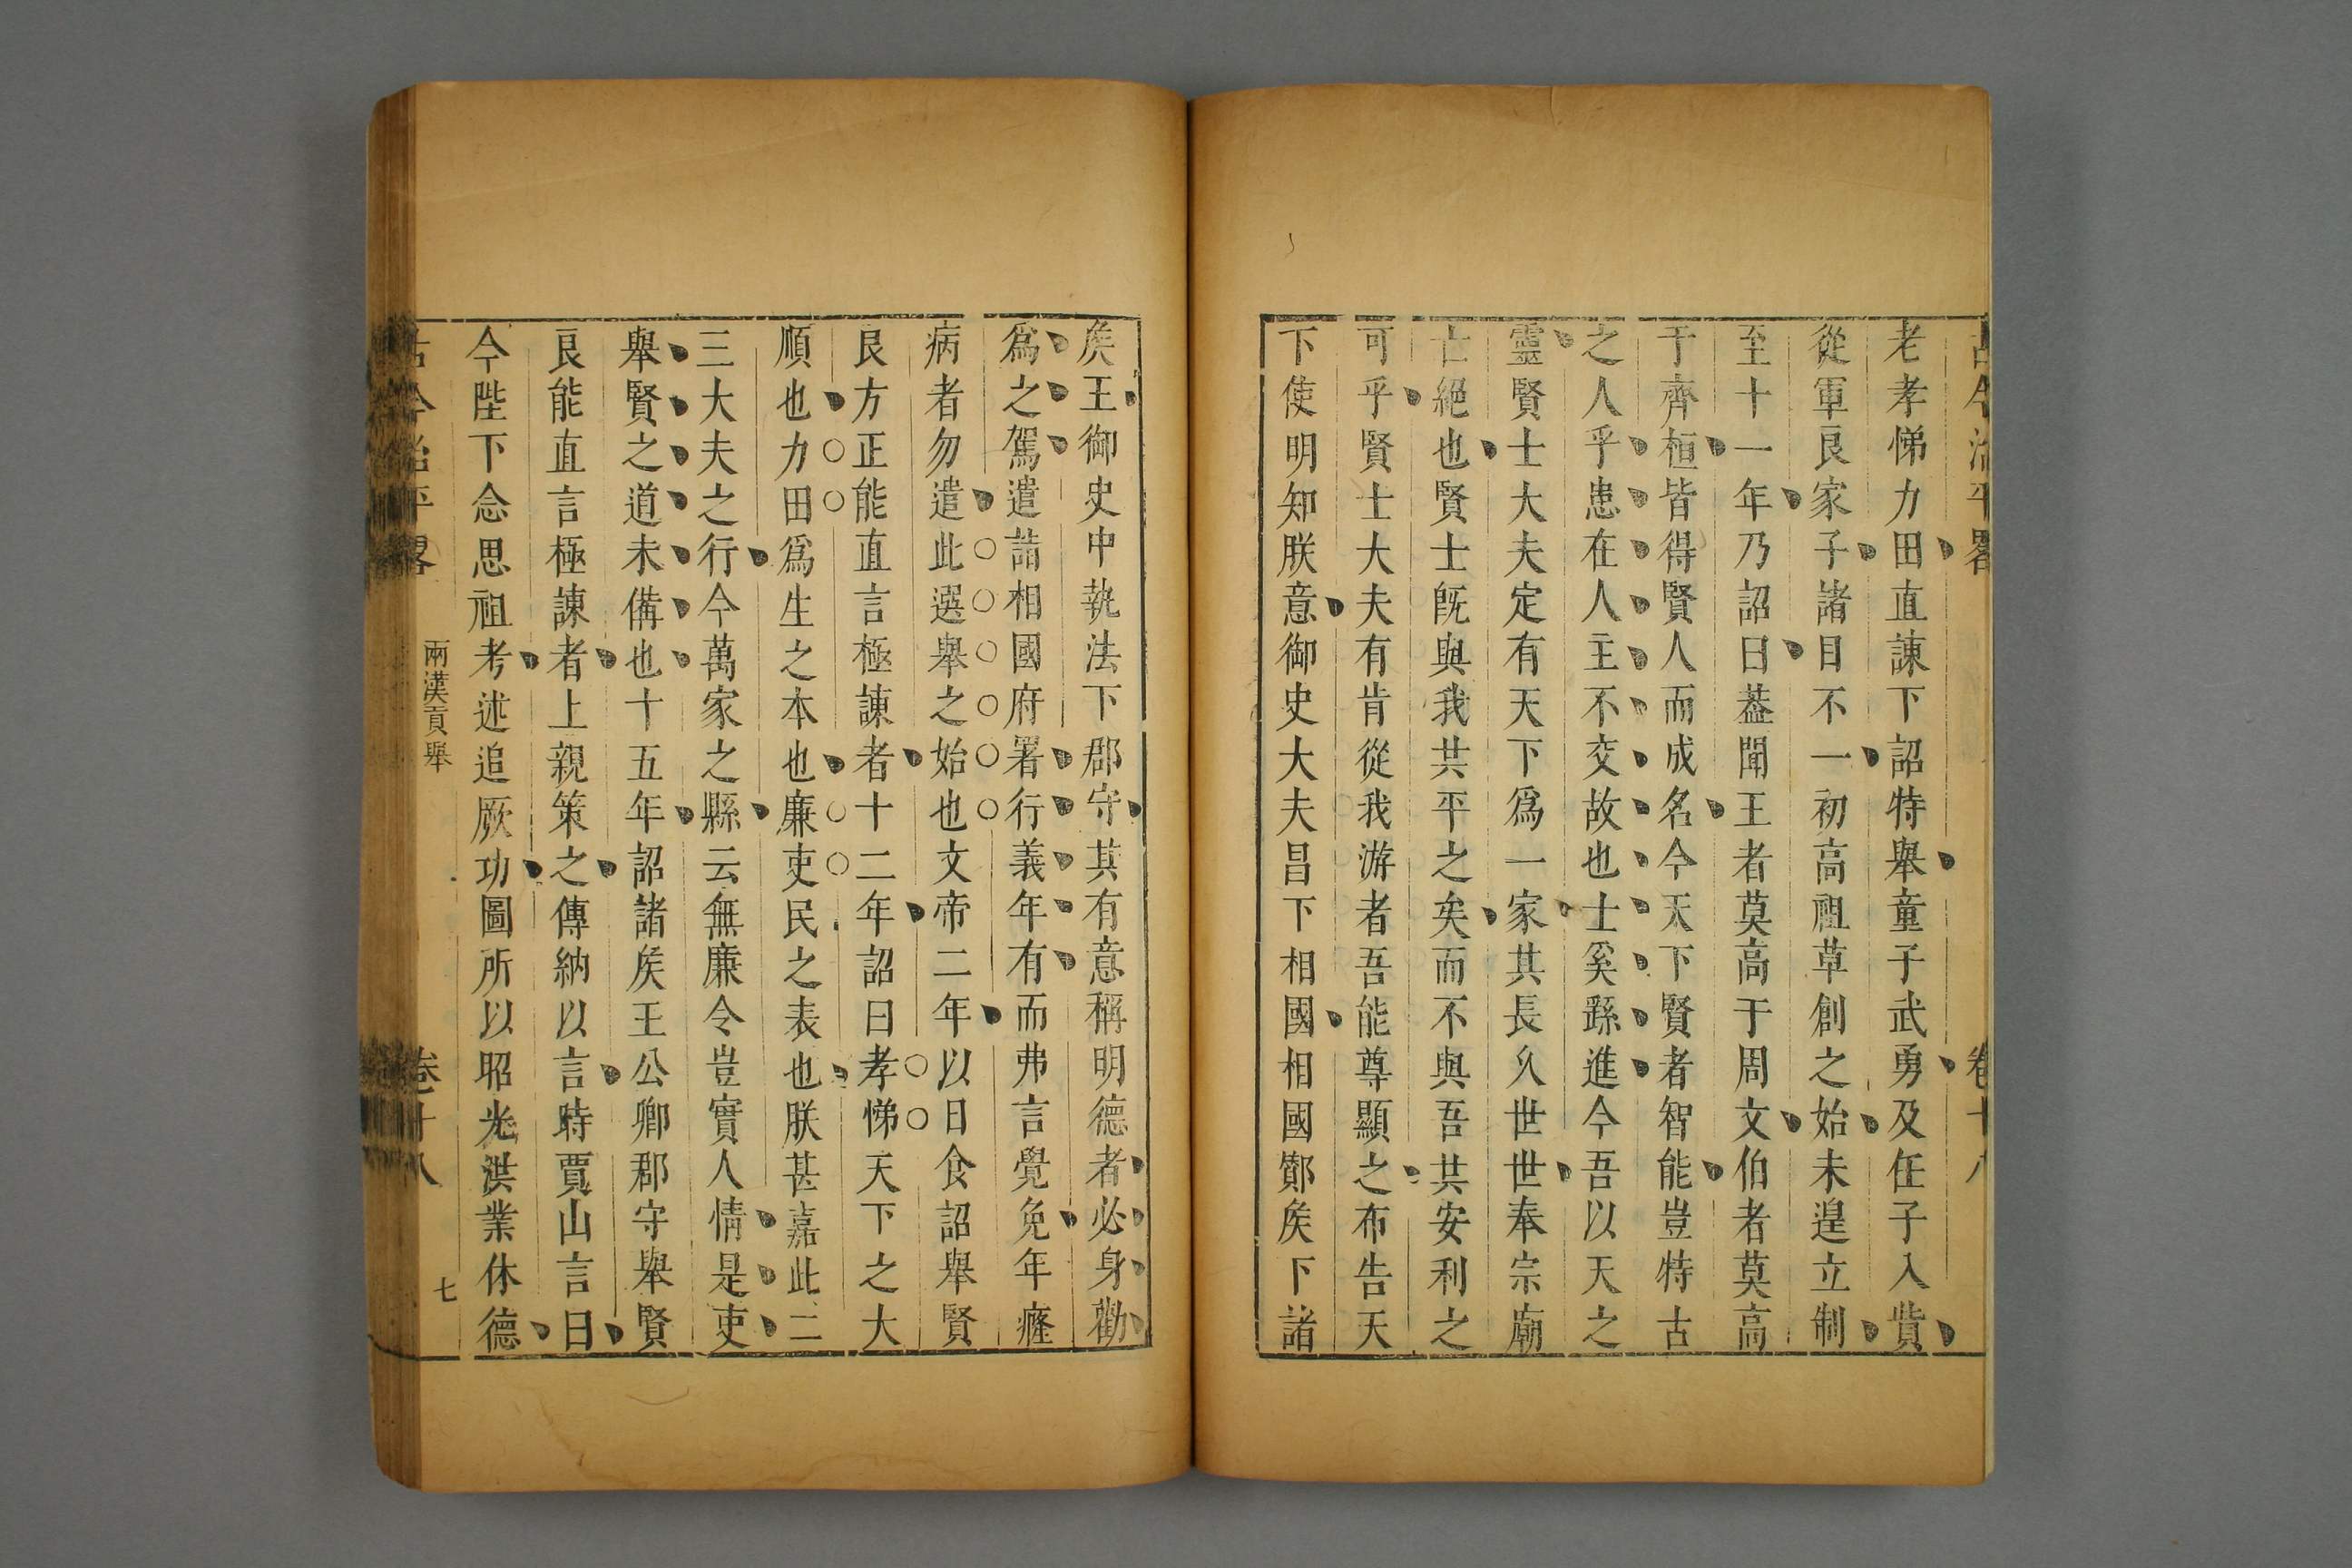 古今治平畧 卷十八
老孝悌力田直諫下詔特舉童子武勇及任子入貲
從軍良家子諸目不一初高祖草創之始未遑立制
至十一年乃詔曰葢聞王者莫高于周文伯者莫高
于齊桓皆得賢人而成名今天下賢者智能豈特古
之人乎患在人主不交故也士奚繇進今吾以天之
靈賢士大夫定有天下爲一家其長久世世奉宗廟
亡絕也賢士旣與我共平之矣而不與吾共安利之
可乎賢士大夫有肯從我游者吾能尊顯之布告天
下使明知朕意御史大夫昌下相國相國酇矦下諸
矦王御史中執法下郡守其有意稱明德者必身勸
爲之駕遣詣相國府署行義年有而弗言覺免年癃
病者勿遣此選舉之始也文帝二年以日食詔舉賢
良方正能直言極諫者十二年詔曰孝悌天下之大
順也力田爲生之本也廉吏民之表也朕甚嘉此二
三大夫之行今萬家之縣云無廉令豈實人情是吏
舉賢之道未備也十五年詔諸矦王公卿郡守舉賢
良能直言極諫者上親策之傳納以言時賈山言曰
今陛下念思祖考述追厥功圖所以昭光洪業休德
古今治平畧 兩漢貢舉 卷十八 七